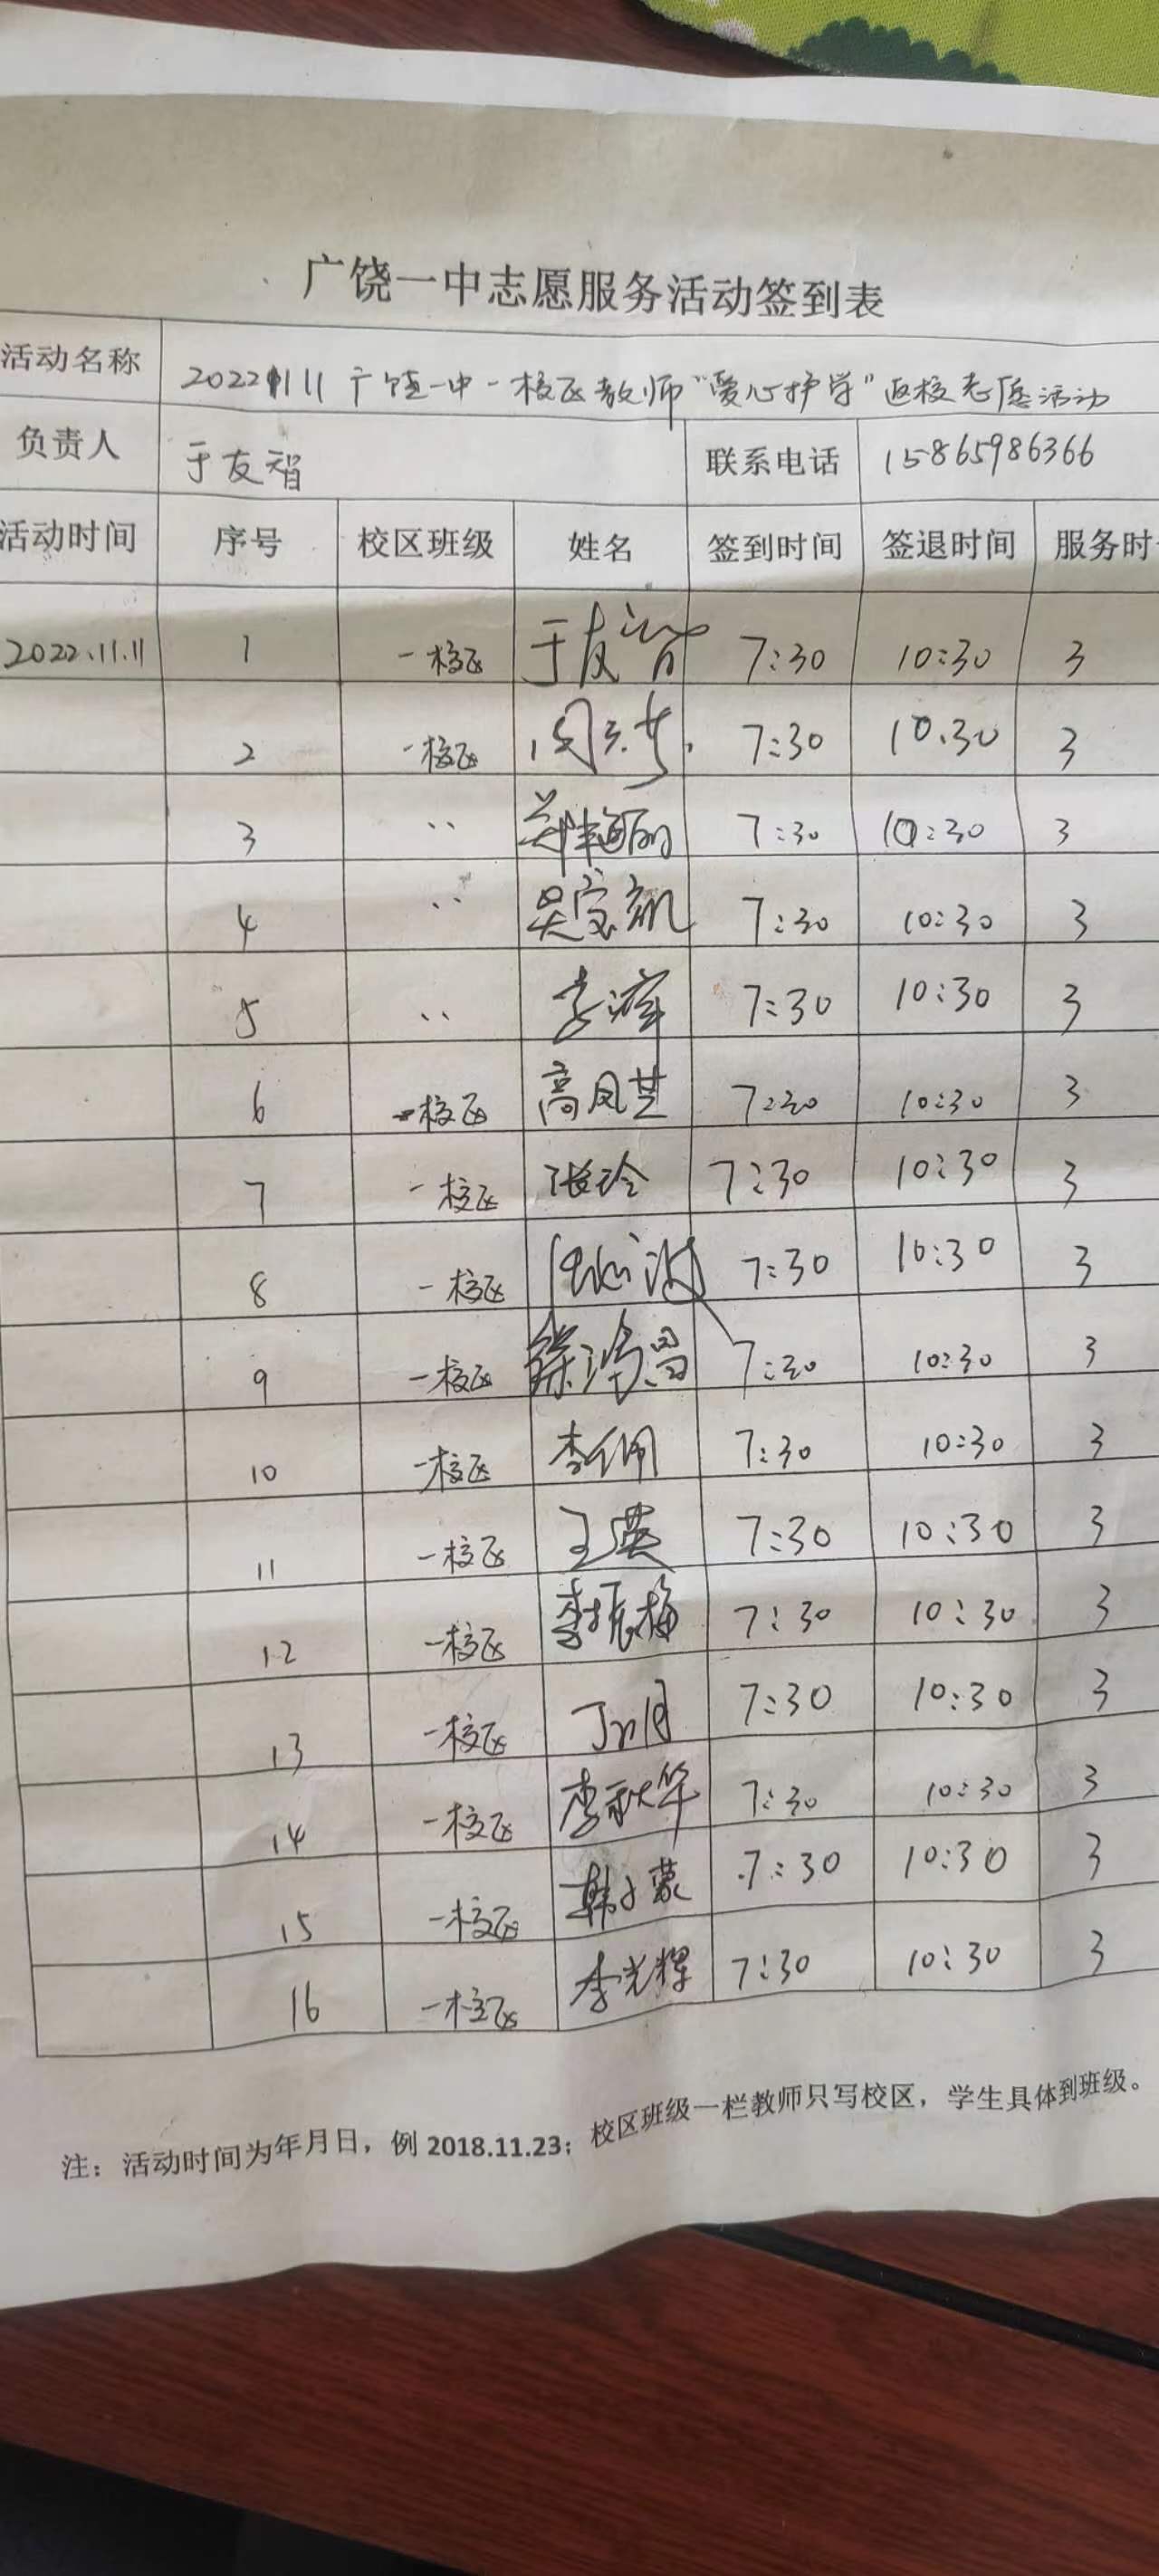 广饶一中志愿服务活动签到表
活动名称 20221111 广饶一中一校区教师“爱心护学”返校志愿活动
负责人 于友智 联系电话 15865986366
活动时间 序号 校区班级 姓名 签到时间 签退时间 服务时
2022.11.11 1 一校区 于友智 7:30 10:30 3
2 一校区 7:30 10:30 3
3 〃 7:30 10:30 3
4 〃 7:30 10:30 3
5 〃 7:30 10:30 3
6 一校区 高凤芝 7:30 10:30 3
7 一校区 张玲 7:30 10:30 3
8 一校区 7:30 10:30 3
9 一校区 7:30 10:30 3
10 一校区 李佩 7:30 10:30 3
11 一校区 王英 7:30 10:30 3
12 一校区 李振梅 7:30 10:30 3
13 一校区 7:30 10:30 3
14 一校区 李秋华 7:30 10:30 3
15 一校区 7:30 10:30 3
16 一校区 李光辉 7:30 10:30 3
注：活动时间为年月日，例 2018.11.23；校区班级一栏教师只写校区，学生具体到班级。